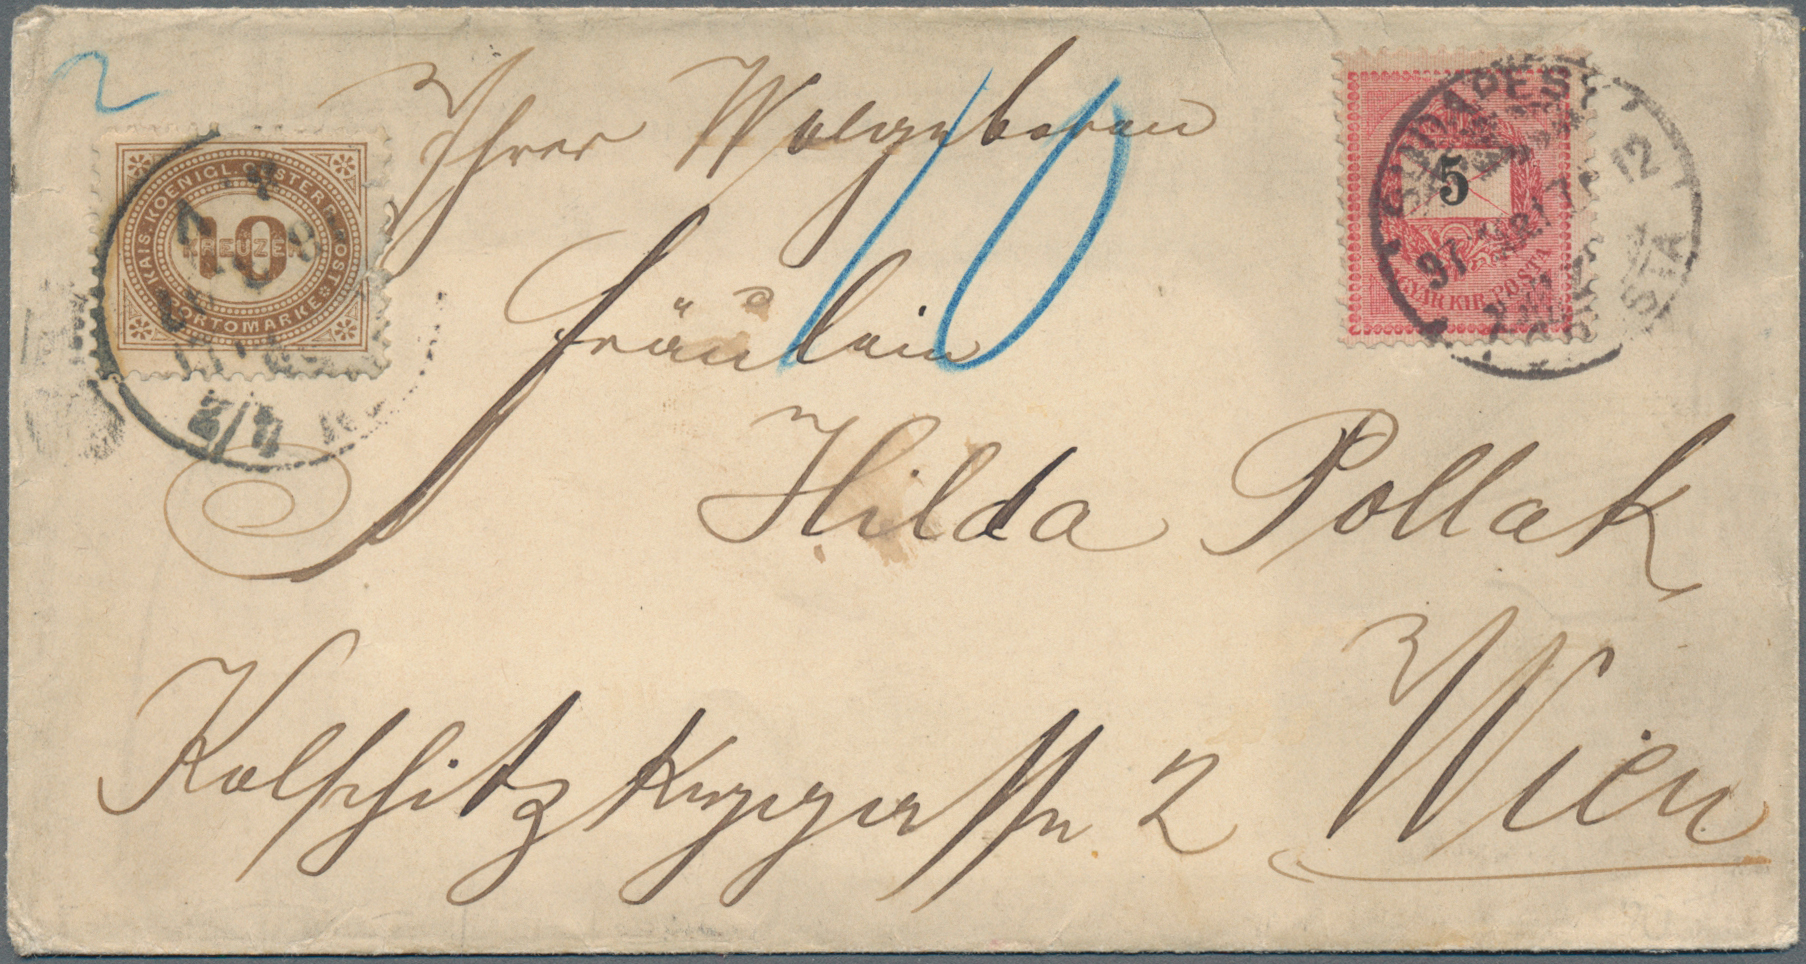 10
KAIS. KOENIGL. OESTERR.
10
KREUZER
POST PORTOMARKE
4/2
Ihrer Wolgeboren
10
BUDAPEST
97
12
5
MAGYAR KIR. POSTA
Fräulein
Hilda Pollak
Kolschitzkygasse 2 Wien